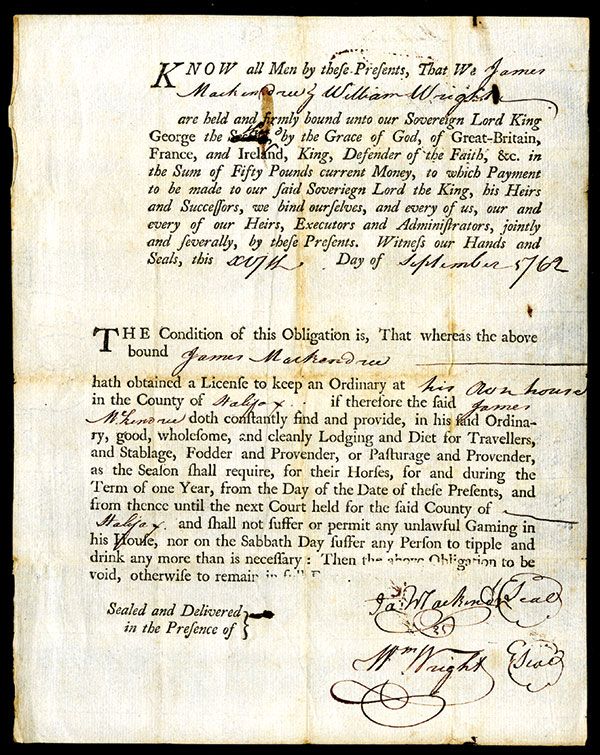 KNOW all Men by theſe Preſents, That We James
Mackendree & William Wright
are held and firmly bound unto our Sovereign Lord King
George the by the Grace of God, of Great-Britain,
France, and Ireland, King, Defender of the Faith, &c. in
the Sum of Fifty Pounds current Money, to which Payment
to be made to our ſaid Soveriegn Lord the King, his Heirs
and Succeſſors, we bind ourſelves, and every of us, our and
every of our Heirs, Executors and Adminiſtrators, jointly
and ſeverally, by theſe Preſents. Witneſs our Hands and
Seals, this XVIth Day of September 1762
THE Condition of this Obligation is, That whereas the above
bound James Mackendree
hath obtained a License to keep an Ordinary at his own house
in the County of Halifax. if therefore the ſaid James
McKendree doth conſtantly find and provide, in his ſaid Ordina-
ry, good, wholeſome, and cleanly Lodging and Diet for Travellers,
and Stablage, Fodder and Provender, or Paſturage and Provender,
as the Seaſon ſhall require, for their Horſes, for and during the
Term of one Year, from the Day of the Date of theſe Preſents, and
from thence until the next Court held for the ſaid County of
Halifax. and ſhall not ſuffer or permit any unlawful Gaming in
his Houſe, nor on the Sabbath Day ſuffer any Perſon to tipple and
drink any more than is neceſſary: Then the above Obligation to be
void, otherwiſe to remain in
Sealed and Delivered
in the Preſence of }
Ja: Mackendree Seal
Wm Wright Seal